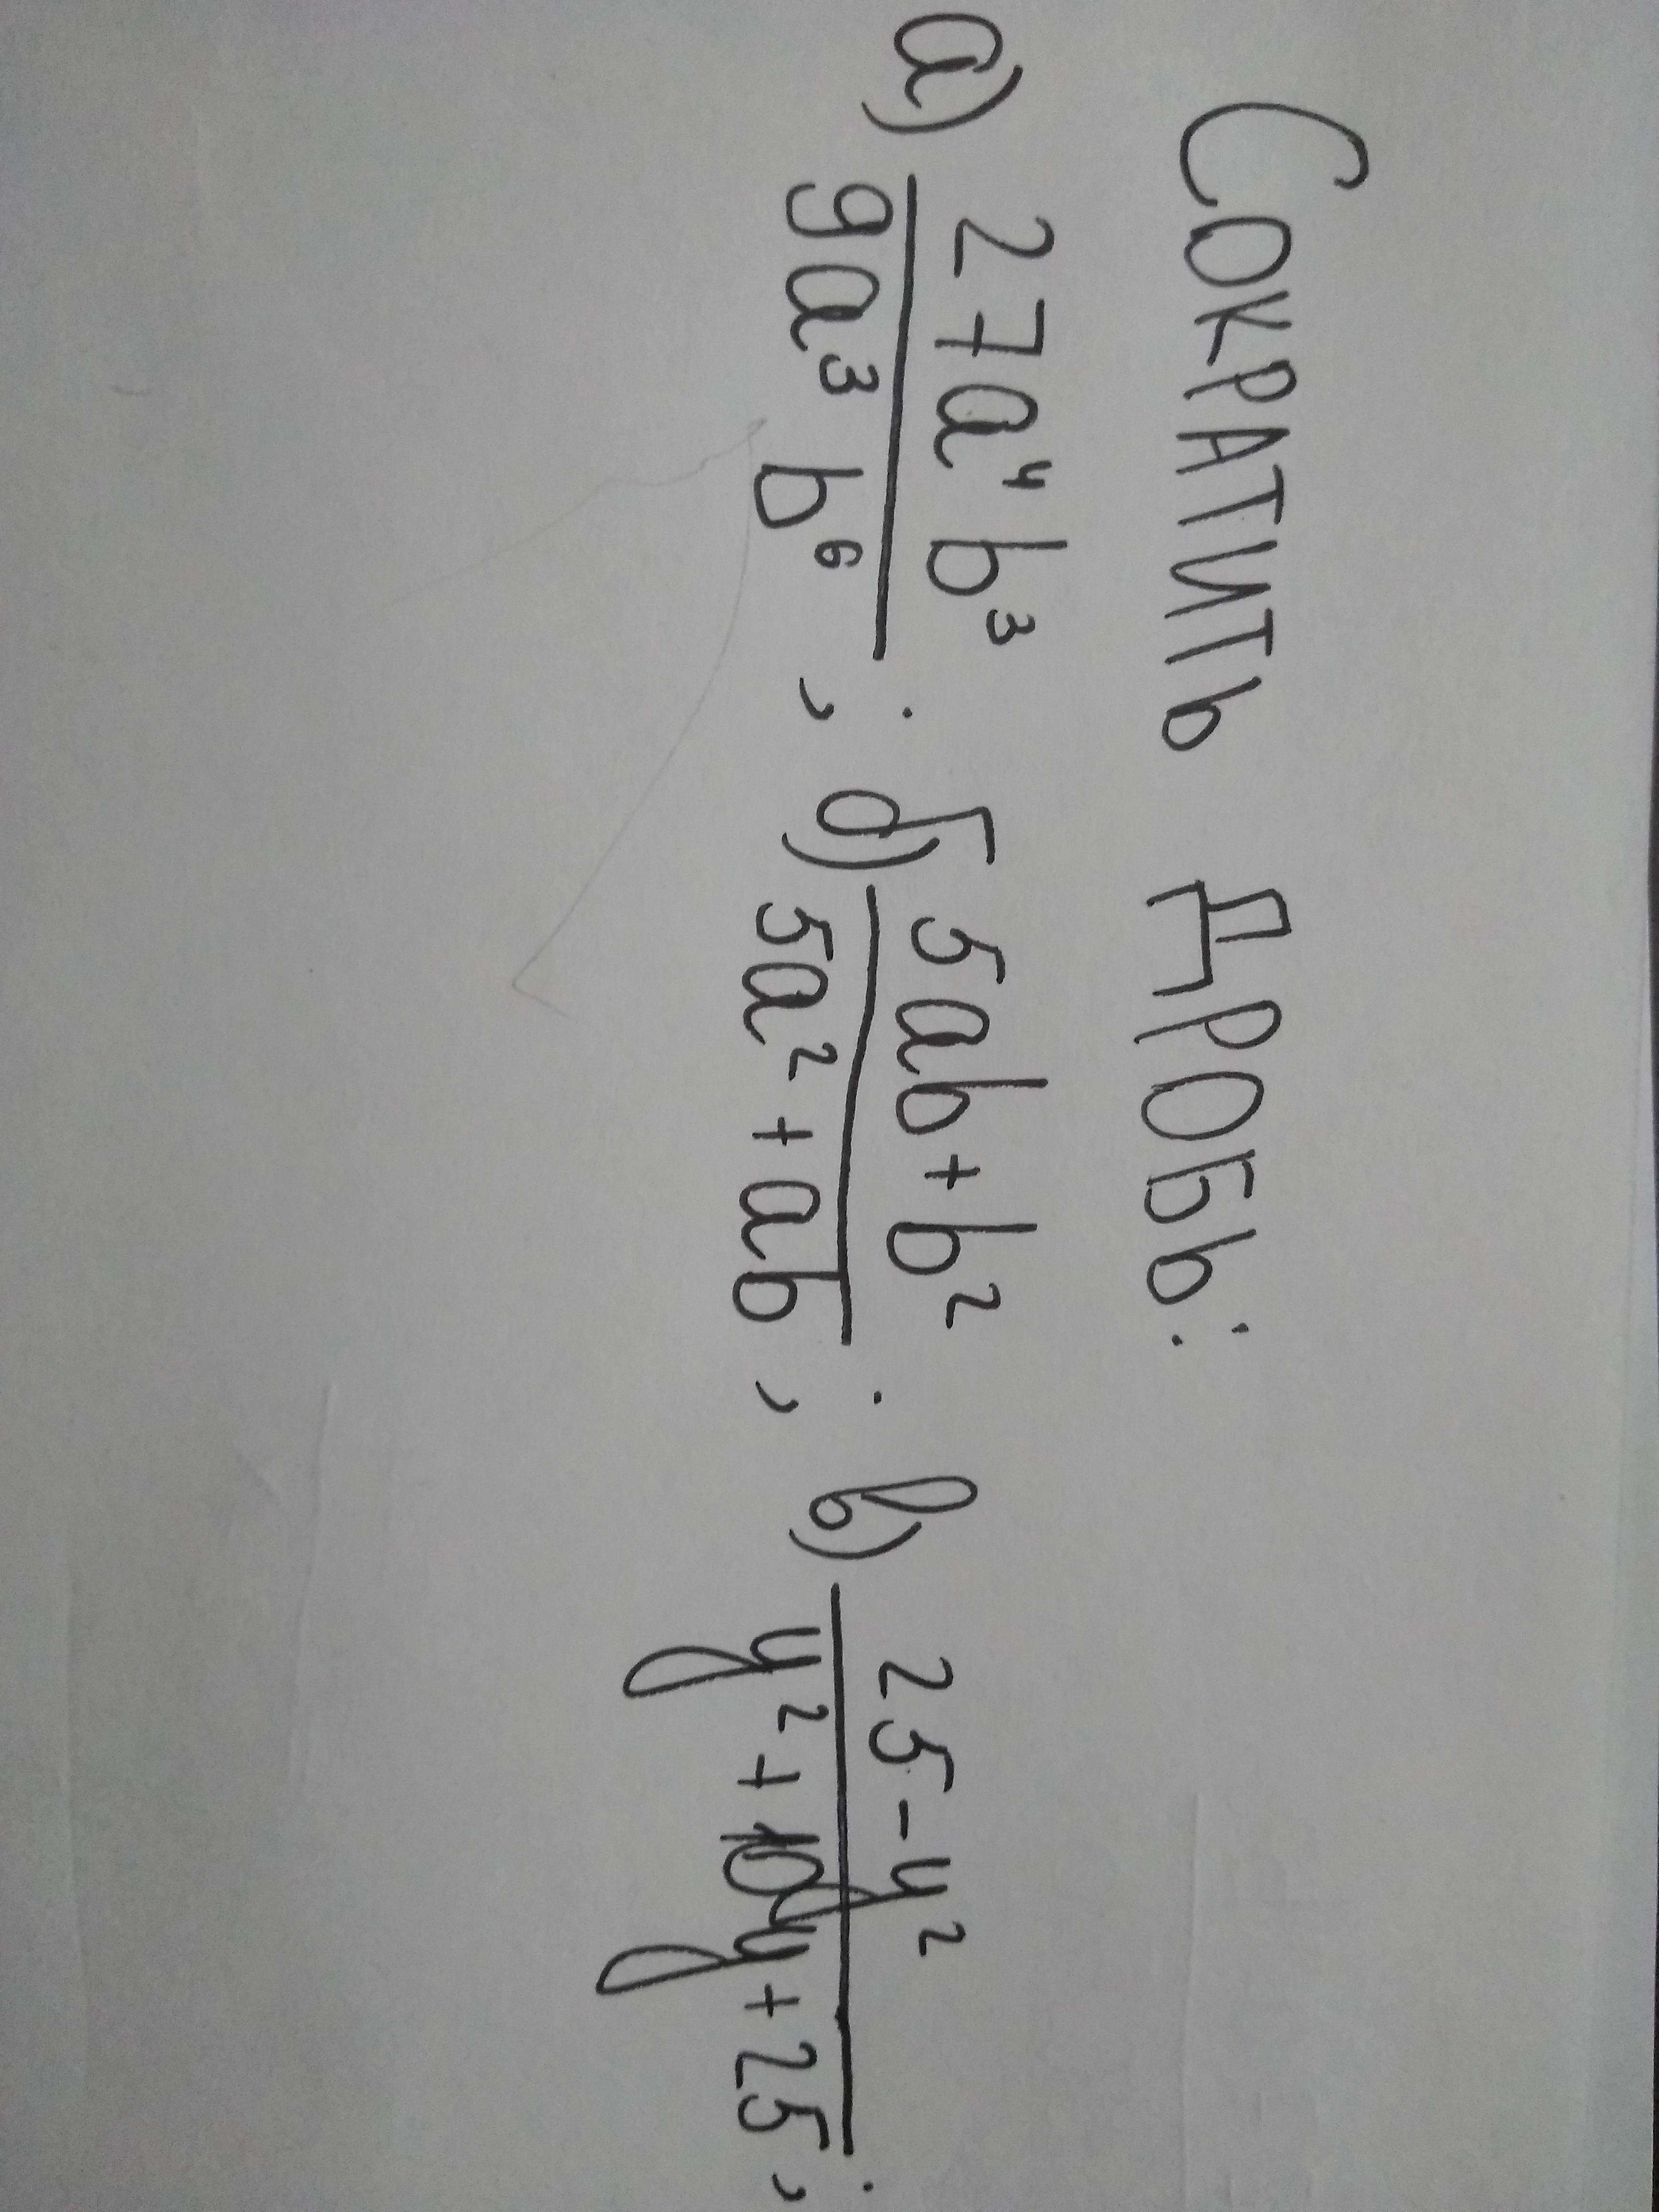 Сократить дробь:
а) 27a⁴b³ / 9a³b⁶ ; б) 5ab+b² / 5a²+ab ; в) 25-y² / y²+10y+25 ;